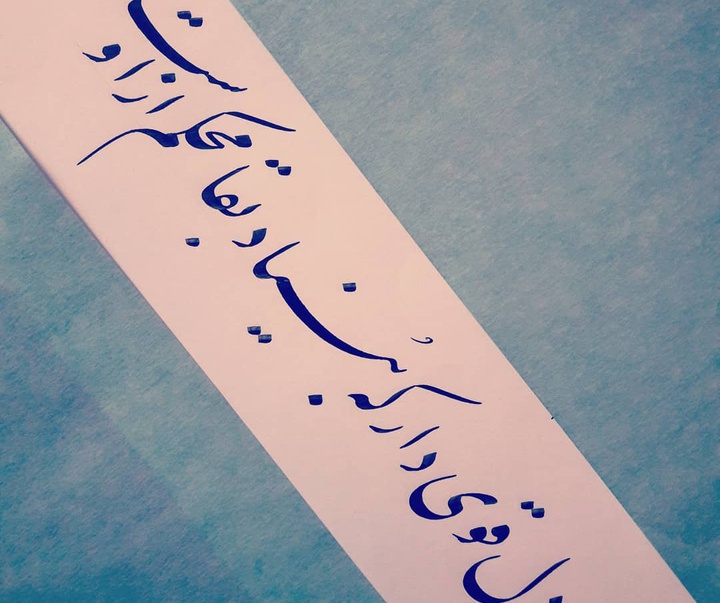 دل قوی دار که بُنیاد بقا محکم ازوست